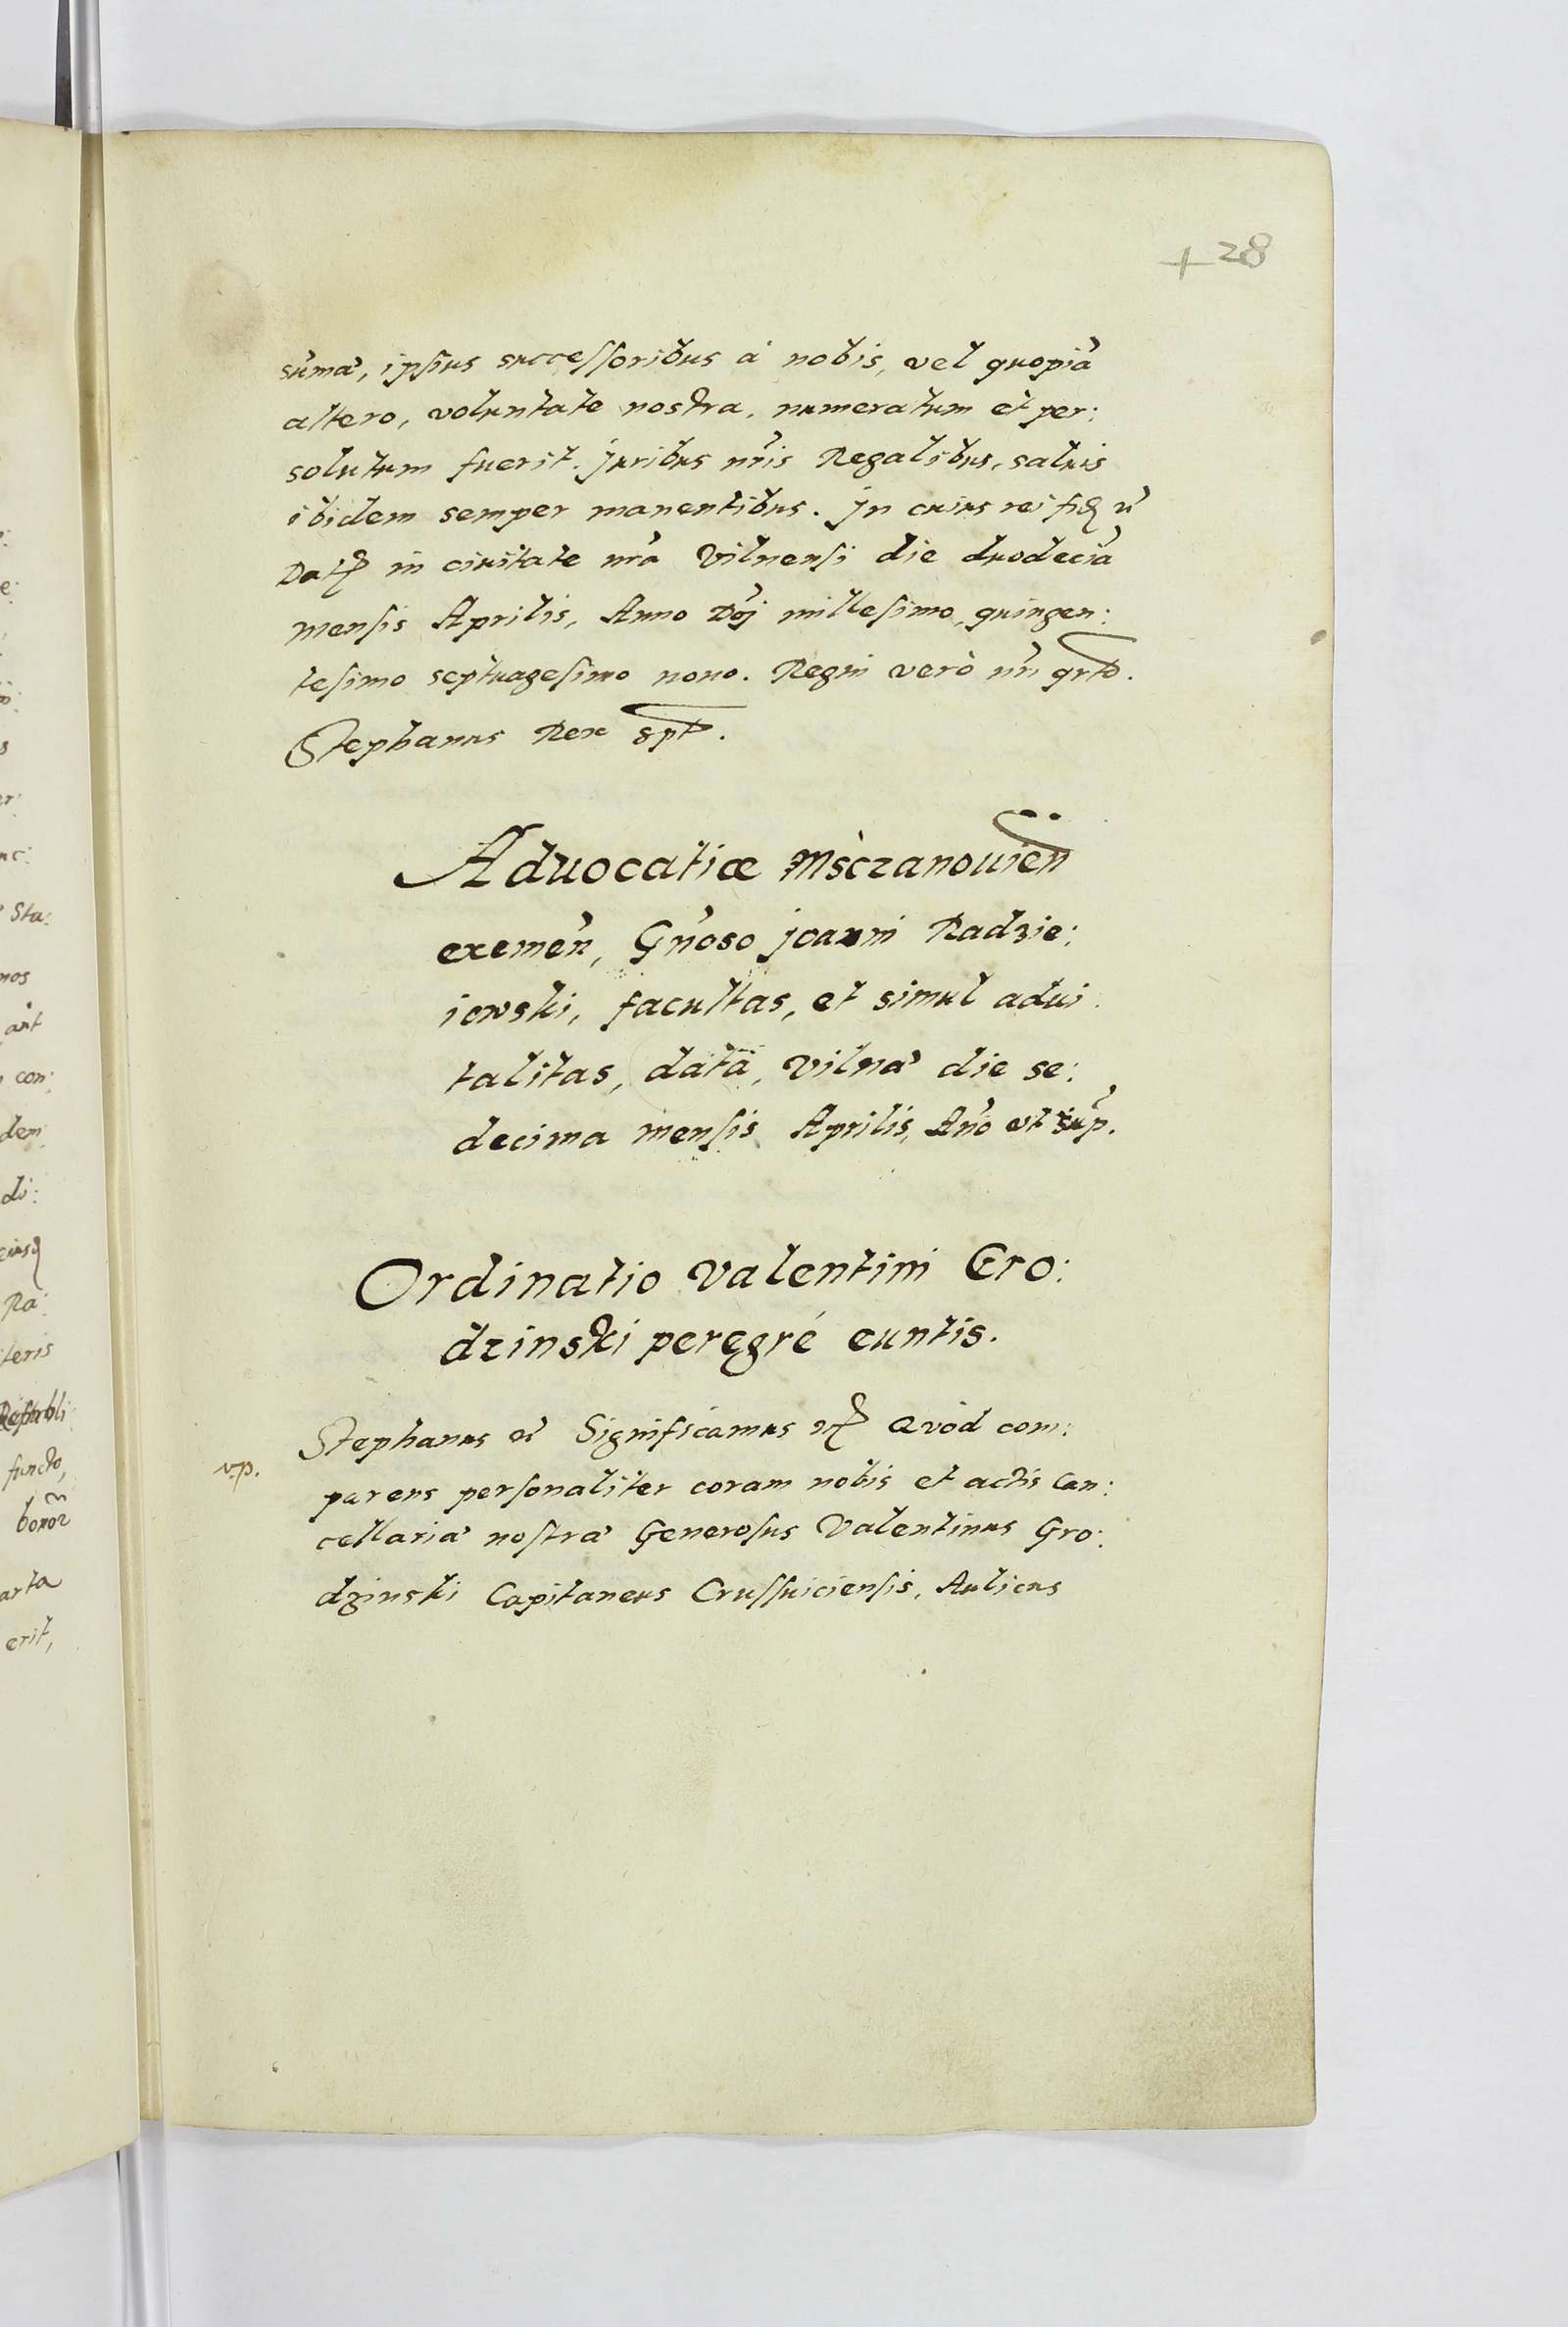 + 28
sum̃a, ipsius successoribus à nobis, vel quopiã
altero, voluntate nostra, numeratum et per:
solutum fuerit. Juribus nr̃is Regalibus, saluis
ibidem semper manentibus. Jn cuius rei fid
Dat in ciuitate nr̃a Vilnensi die duodecĩa
mensis Aprilis, Anno Dn̄j millesimo, quingen:
tesimo septuagesimo nono. Regni verò nr̃i qrto.
Stephanus Rex spt.
Aduocatiæ Msczanouien̄
exemen̄, Gn̄oso joanni Radzie:
iowski, facultas, et simul adui:
talitas, data, Vilnæ die se:
decima mensis Aprilis, An̄o vt sup̄.
Ordinatio Valentini Gro:
dzinski peregré euntis.
v.p.
Stephanus Significamus Qvòd com:
parens personaliter coram nobis et actis Can:
cellariæ nostræ Generosus Valentinus Gro:
dzinski Capitaneus Crussuiciensis, Aulicus
e:
Sta:
nos
aut
con:
dem
di:
eiusq
Ra:
teris
functo,
bonor
arta
erit,